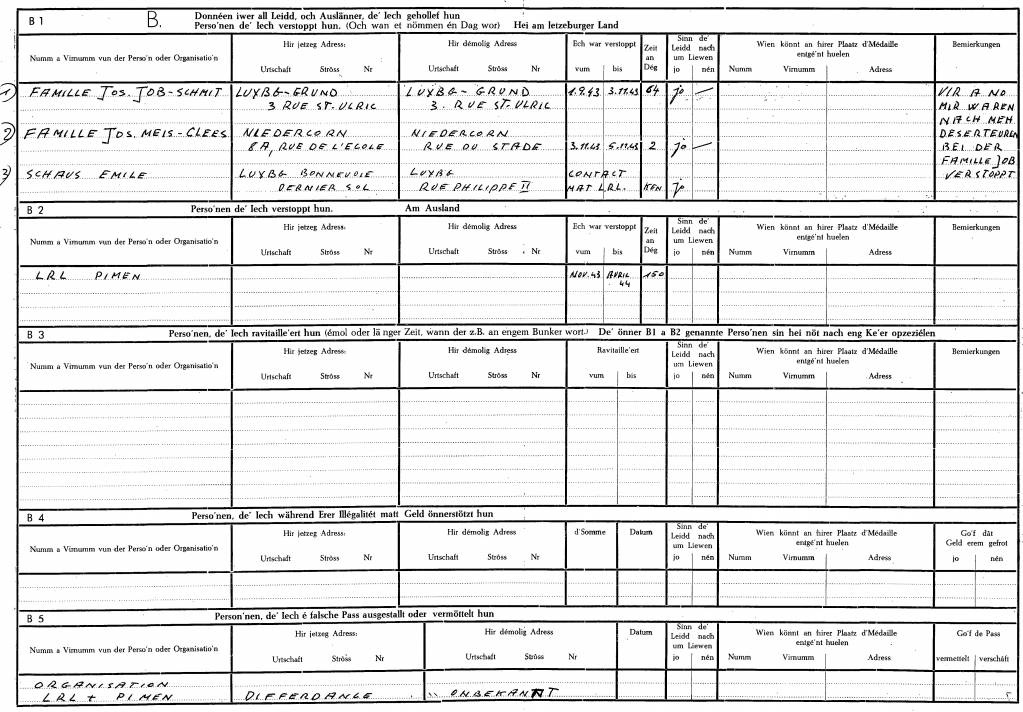 B 1 B. Donnéen iwer all Leidd, och Auslänner, de' Iech gehollef hun
Perso'nen de' Iech verstoppt hun. (Och wan et nömmen én Dag wor) Hei am letzeburger Land
Numm a Virnumm vun der Perso'n oder Organisatio'n
Hir jetzeg Adress:
Urtschaft Ströss Nr
Hir démolig Adress
Urtschaft Ströss Nr
Ech war verstoppt
vum bis
Zeit
an
Dég
Sinn de'
Leidd nach
um Liewen
jo nén
Wien könnt an hirer Plaatz d'Médaille
entgé'nt huelen
Numm Virnumm Adress
Bemierkungen
1) FAMILLE JOS. JOB-SCHMIT LUXBG-GRUND LUXBG-GRUND 1.9.43 3.11.43 64 jo —
3 RUE ST. ULRIC 3. RUE ST. ULRIC
2) FAMILLE JOS. MEIS-CLEES NIEDERCORN NIEDERCORN
8A, RUE DE L'ECOLE RUE DU STADE 3.11.43 5.11.43 2 jo —
3) SCHAUS EMILE LUXBG BONNEVOIE LUXBG CONTACT
DERNIER SOL RUE PHILIPPE II MAT LRL. KEN jo
VIR A NO
MIR WAREN
NACH MEH
DESERTEUREN
BEI DER
FAMILLE JOB
VERSTOPPT
B 2 Perso'nen de' Iech verstoppt hun. Am Ausland
Numm a Virnumm vun der Perso'n oder Organisatio'n
Hir jetzeg Adress:
Urtschaft Ströss Nr
Hir démolig Adress
Urtschaft Ströss Nr
Ech war verstoppt
vum bis
Zeit
an
Dég
Sinn de'
Leidd nach
um Liewen
jo nén
Wien könnt an hirer Plaatz d'Médaille
entgé'nt huelen
Numm Virnumm Adress
Bemierkungen
LRL PIMEN NOV. 43 AVRIL 150
44
B 3 Perso'nen, de' Iech ravitaille'ert hun (émol oder länger Zeit, wann der z.B. an engem Bunker wort.) De' önner B1 a B2 genannte Perso'nen sin hei nöt nach eng Ke'er opzeziélen
Numm a Virnumm vun der Perso'n oder Organisatio'n
Hir jetzeg Adress:
Urtschaft Ströss Nr
Hir démolig Adress
Urtschaft Ströss Nr
Ravitaille'ert
vum bis
Sinn de'
Leidd nach
um Liewen
jo nén
Wien könnt an hirer Plaatz d'Médaille
entgé'nt huelen
Numm Virnumm Adress
Bemierkungen
B 4 Perso'nen, de' Iech während Erer Illégalitét matt Geld önnerstötzt hun
Numm a Virnumm vun der Perso'n oder Organisatio'n
Hir jetzeg Adress:
Urtschaft Ströss Nr
Hir démolig Adress
Urtschaft Ströss Nr
d'Somme Datum
Sinn de'
Leidd nach
um Liewen
jo nén
Wien könnt an hirer Plaatz d'Médaille
entgé'nt huelen
Numm Virnumm Adress
Go'f dät
Geld erem gefrot
jo nén
B 5 Person'nen, de' Iech é falsche Pass ausgestallt oder vermöttelt hun
Numm a Virnumm vun der Perso'n oder Organisatio'n
Hir jetzeg Adress:
Urtschaft Ströss Nr
Hir démolig Adress
Urtschaft Ströss Nr
Datum
Sinn de'
Leidd nach
um Liewen
jo nén
Wien könnt an hirer Plaatz d'Médaille
entgé'nt huelen
Numm Virnumm Adress
Go'f de Pass
vermettelt verschäft
ORGANISATION
LRL + PIMEN DIFFERDANGE ONBEKANNT